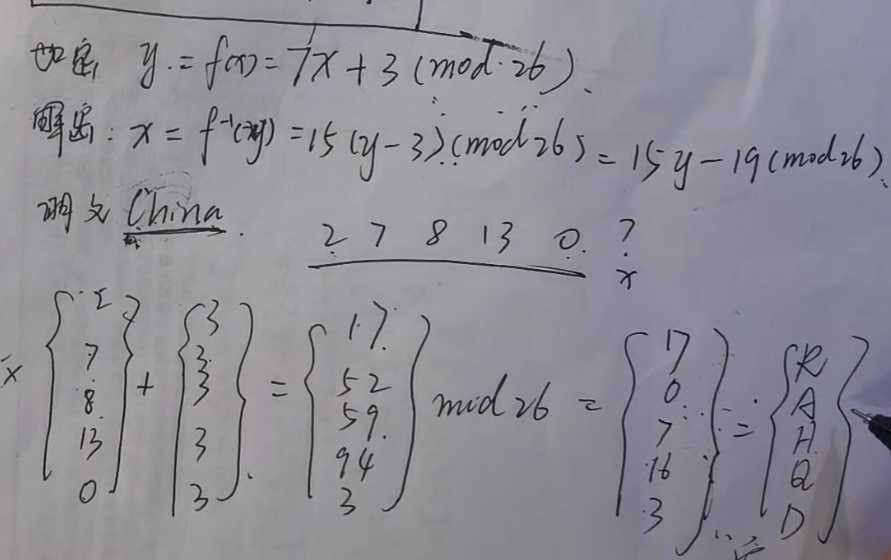 加密 y = f(x) = 7x + 3 (mod 26)
解密: x = f⁻¹(y) = 15(y-3)(mod 26) = 15y - 19 (mod 26)
明文 China.
2 7 8 13 0 ?
x
{2 7 8 13 0} + {3 3 3 3 3} = {17 52 59 94 3} mod 26 = {17 0 7 16 3} = {R A H Q D}